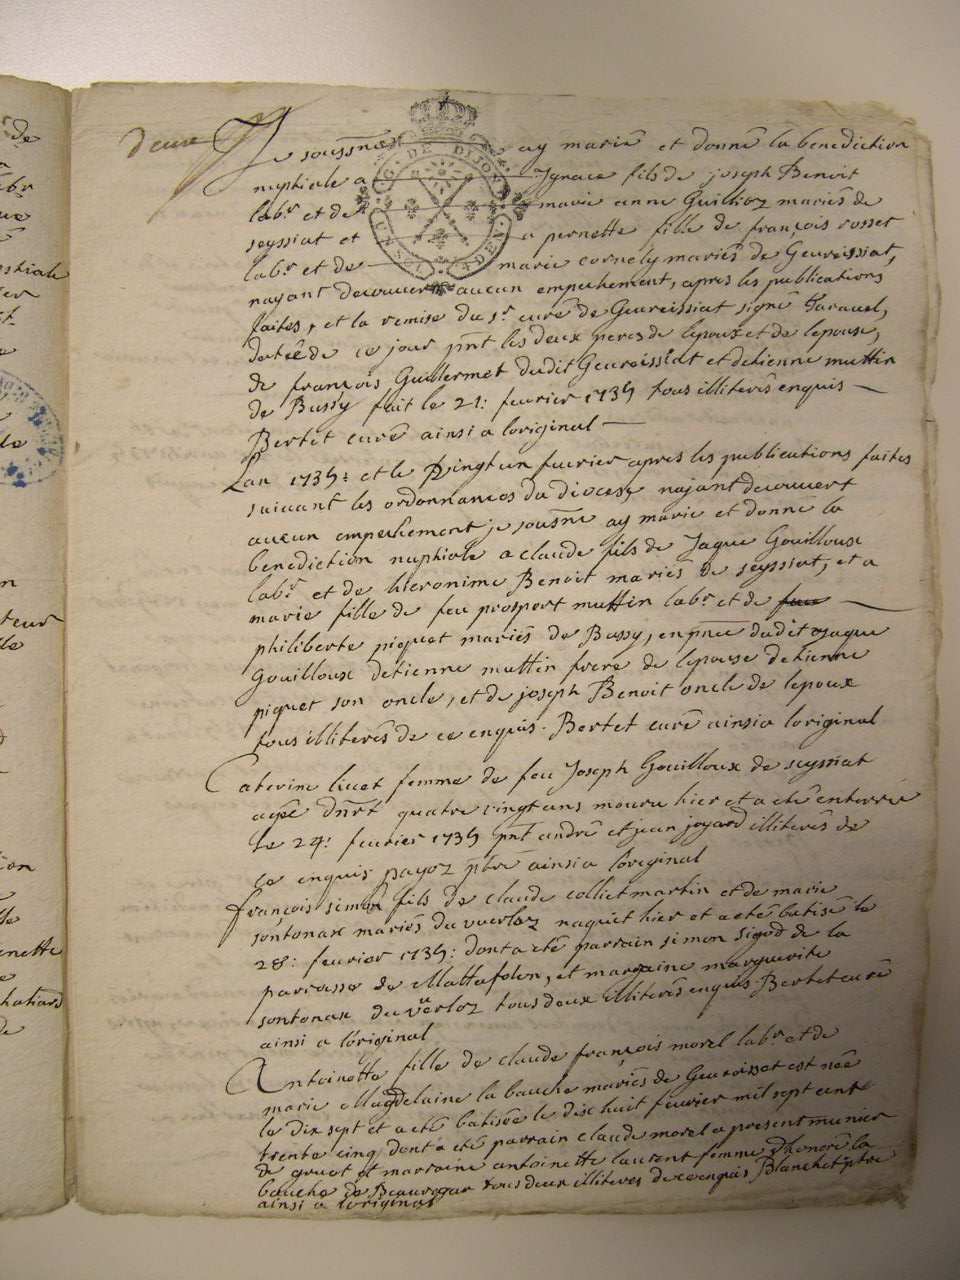 Je soussné ay marié et donné la benediction
nuptiale a Ignace fils de joseph Benoit
labr et de marie anne Guilloz mariés de
seyssiat et a pernette fille de françois rosset
labr et de marie cornely mariés de Geureissiat,
nayant decouvert aucun empechement, apres les publications
faites, et la remise du sr curé de Geureissiat signé Taravel,
datée de ce jour pnt les deux peres de lepoux et de lepouse,
de françois Guillermet dudit Geureissiat et detienne muttin
de Bussy fait le 21: feurier 1735 tous illiterés enquis
Bertet curé ainsi a loriginal
Lan 1735: et le vingt un feurier apres les publications faites
suivant les ordonnances du diocese nayant decouvert
aucun empechement je sousné ay marié et donné la
benediction nuptiale a claude fils de Jaque Gouilloux
labr et de hieronime Benoit mariés de seyssiat, et a
marie fille de feu prospert muttin labr et de
philiberte piquet mariés de Bussy, en pnce dudit Jaque
Gouilloux detienne muttin frere de lepouse detienne
piquet son oncle, et de joseph Benoit oncle de lepoux
tous illiterés de ce enquis. Bertet curé ainsi a loriginal
Caterine liuet femme de feu Joseph Gouilloux de seyssiat
agée dnrt quatre vingt ans mourut hier et a eté enterrée
le 24: feurier 1735 pnt andré et jean joyard illiterés de
ce enquis payoz ptre ainsi a loriginal
françois simon fils de claude colliet martin et de marie
sontonax mariés du vuerloz naquit hier et a eté batisé le
28: feurier 1735: dont a eté parrain simon sigod de la
parroisse de Mattafelon, et marraine marguerite
sontonax du verloz tous deux illiterés enquis Bertet curé
ainsi a loriginal
Antoinette fille de claude françois morel labr et de
marie Magdelaine la bauche mariés de Geuroisset est née
le dix sept et a eté batisée le dix huit feurier mil sept cent
trente cinq dont a eté parrain claude morel a present munier
de gruet et marraine antoinette laurent femme dhonoré la
bauche de Beauregar tous deux illiteres de ce enquis Blanchet ptre
ainsi a loriginal